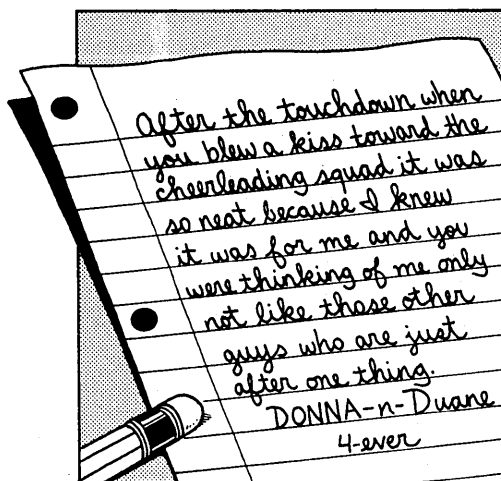 After the touchdown when
you blew a kiss toward the
cheerleading squad it was
so neat because I knew
it was for me and you
were thinking of me only
not like those other
guys who are just
after one thing.
DONNA-n-Duane
4-ever